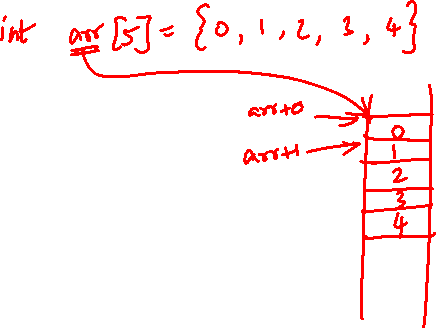 int arr[5] = {0, 1, 2, 3, 4}
arr+0
0
arr+1
1
2
3
4